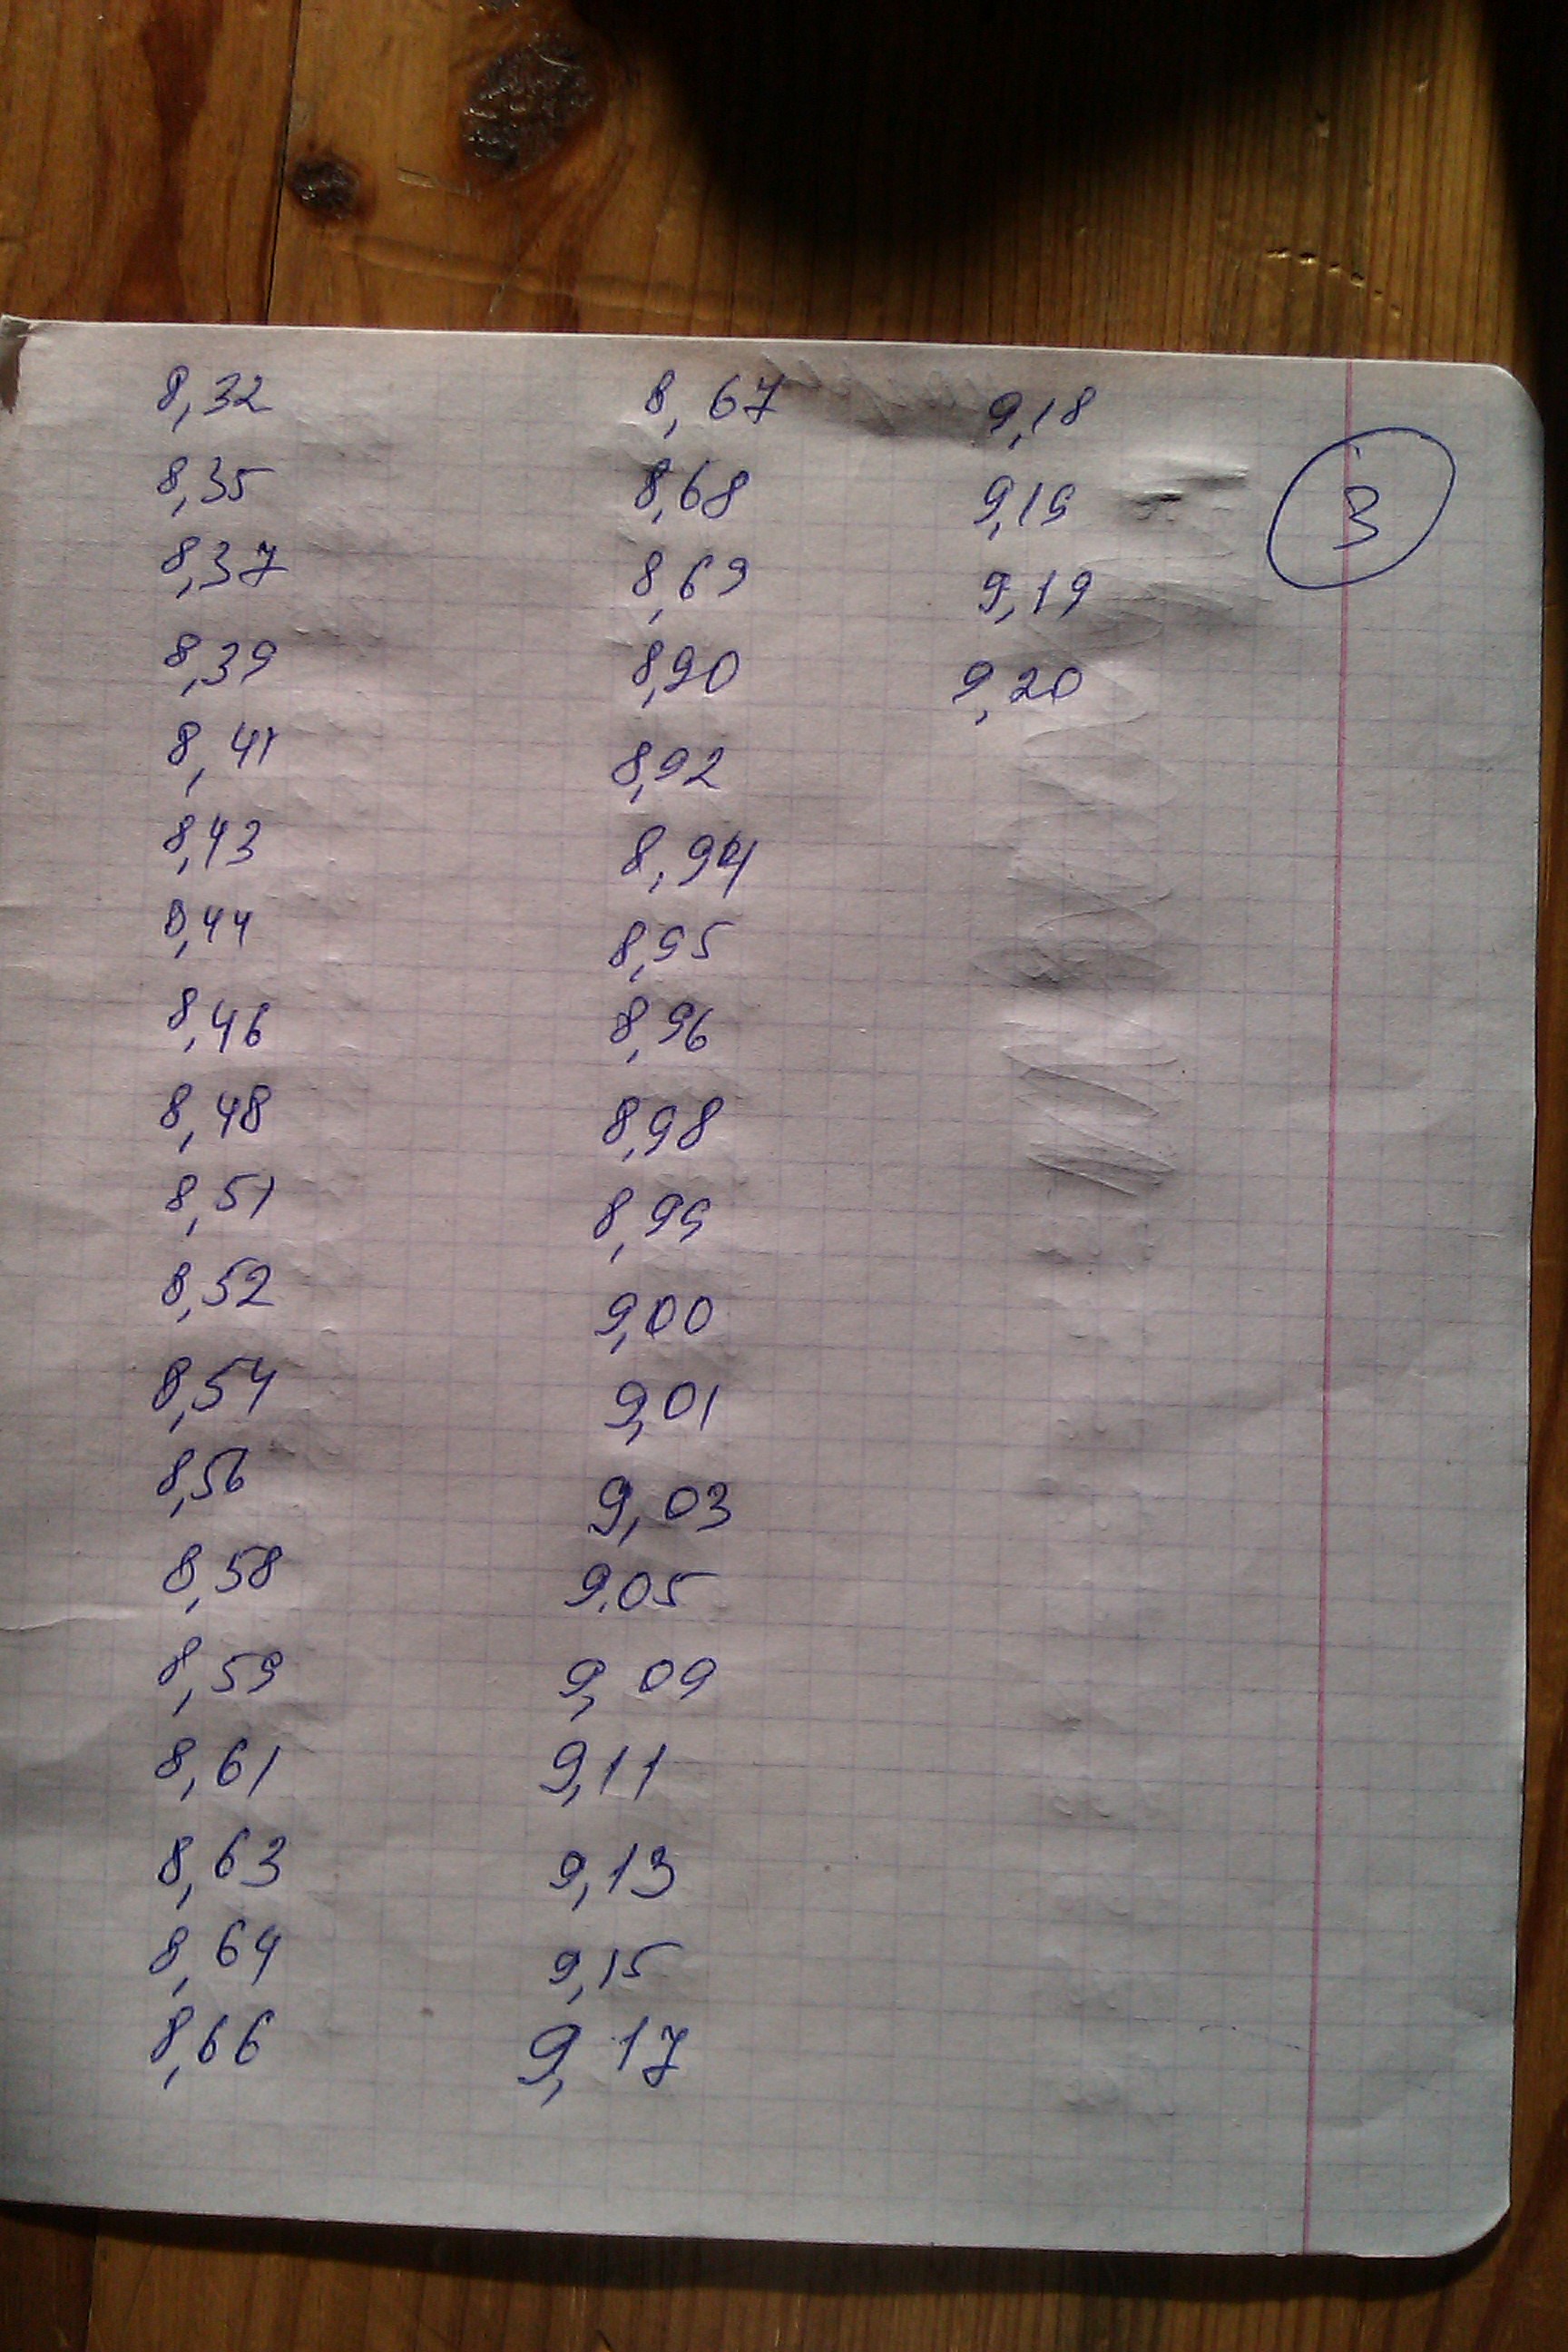 8,32
8,35
8,37
8,39
8,41
8,43
8,44
8,46
8,48
8,51
8,52
8,54
8,56
8,58
8,59
8,61
8,63
8,64
8,66
8,67
8,68
8,69
8,90
8,92
8,94
8,95
8,96
8,98
8,99
9,00
9,01
9,03
9,05
9,09
9,11
9,13
9,15
9,17
9,18
9,19
9,19
9,20
3